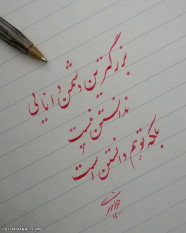 بزرگترین دشمن دانایی
ندانستن نیست
بلکه توهم دانستن است